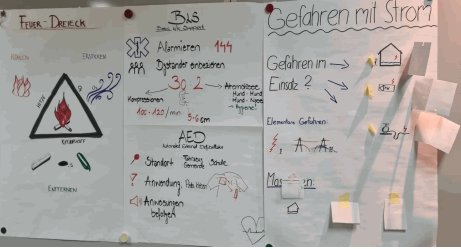 FEUER-DREIECK
KÜHLEN
ERSTICKEN
HITZE
O₂
BRENNSTOFF
ENTFERNEN
BLS
Basic Life Support
Alarmieren 144
Bystander einbeziehen
30 : 2
Kompressionen
100-120/min
5-6 cm
Atemstösse
AED
Automated External Defibrillator
Standort
Gemeinde
Schule
Anwendung
Anweisungen
befolgen
Gefahren mit Strom
Gefahren im
Einsatz ?
Elementare Gefahren